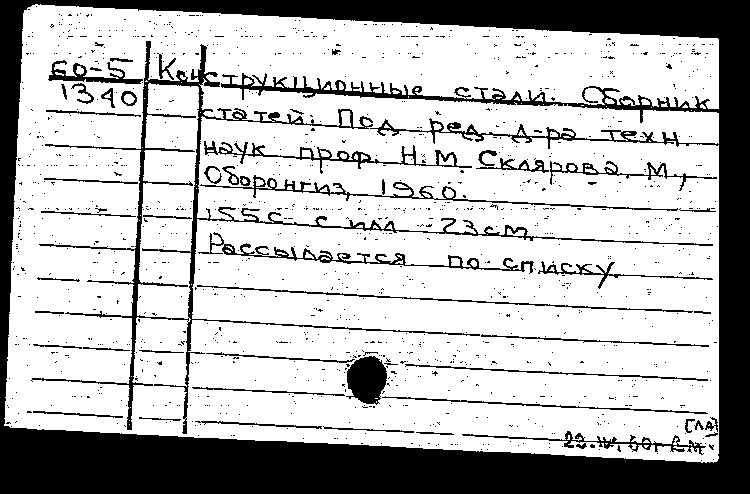 60-5 Конструкционные стали. Сборник
1340 статей. Под ред. д-ра техн.
наук проф. Н.М. Склярова. М.,
Оборонгиз, 1960.
155с. с илл. 23см.
Рассылается по списку.
[ЛА]
22.IV.60г